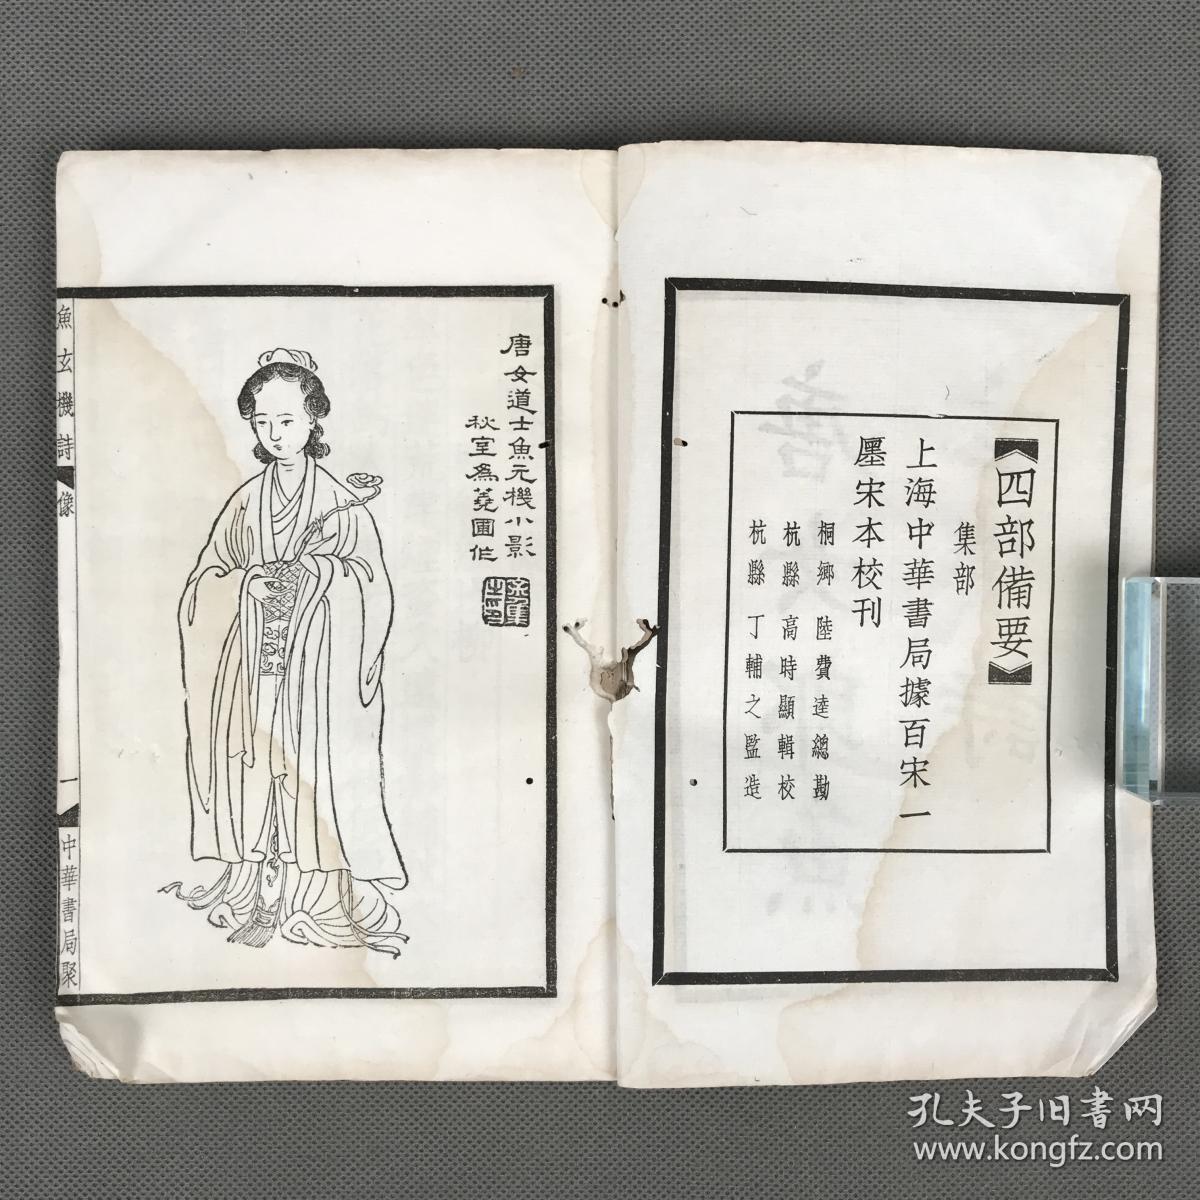 四部備要
集部
上海中華書局據百宋一
廛宋本校刊
桐鄉 陸費逵總勘
杭縣 高時顯輯校
杭縣 丁輔之監造
唐女道士魚元機小影
秋室爲蕘圃作
魚玄機詩 像
一
中華書局聚
孔夫子旧书网
www.kongfz.com